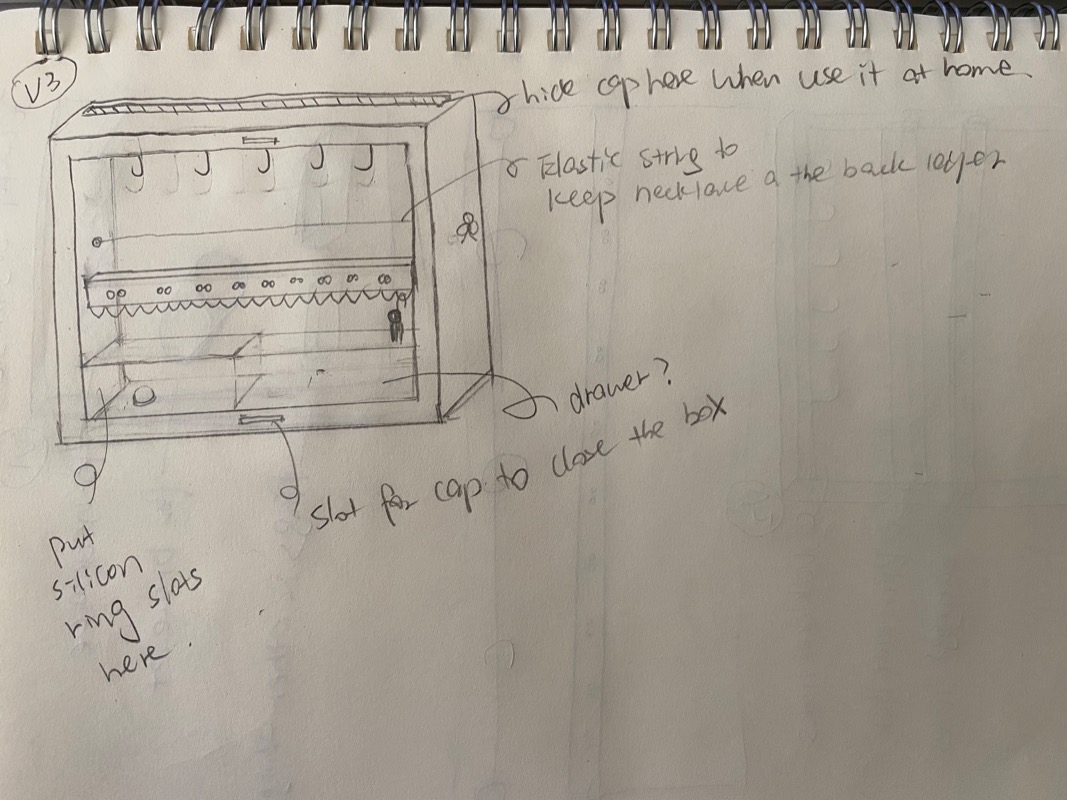 V3
hide cap here when use it at home.
Elastic string to
keep necklace a the back layer
drawer?
slot for cap to close the box
put
silicon
ring slots
here.